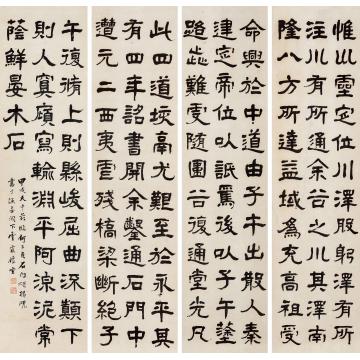 惟以靈定位川澤股躬澤有所
注川有所通余谷之川其澤南
隆八方所達益域為充高祖受
命興於中道由子午出散入秦
建定帝位以詆焉後以子午塗
路歰難更隨圍谷復通堂光凡
此四道垓鬲尤艱至於永平其
有四年詔書開余鑿通石門中
遭元二西夷虐殘橋梁斷絕子
午復循上則縣峻屈曲流顛下
則入冥傾寫輸淵平阿湫泥常
蔭鮮晏木石